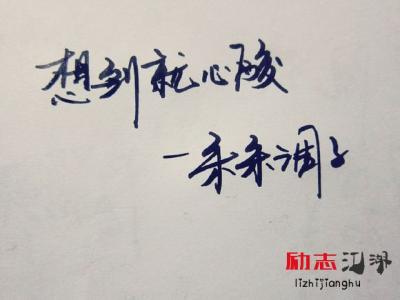 想到就心酸
一杀杀调子
励志江湖
lizhijianghu